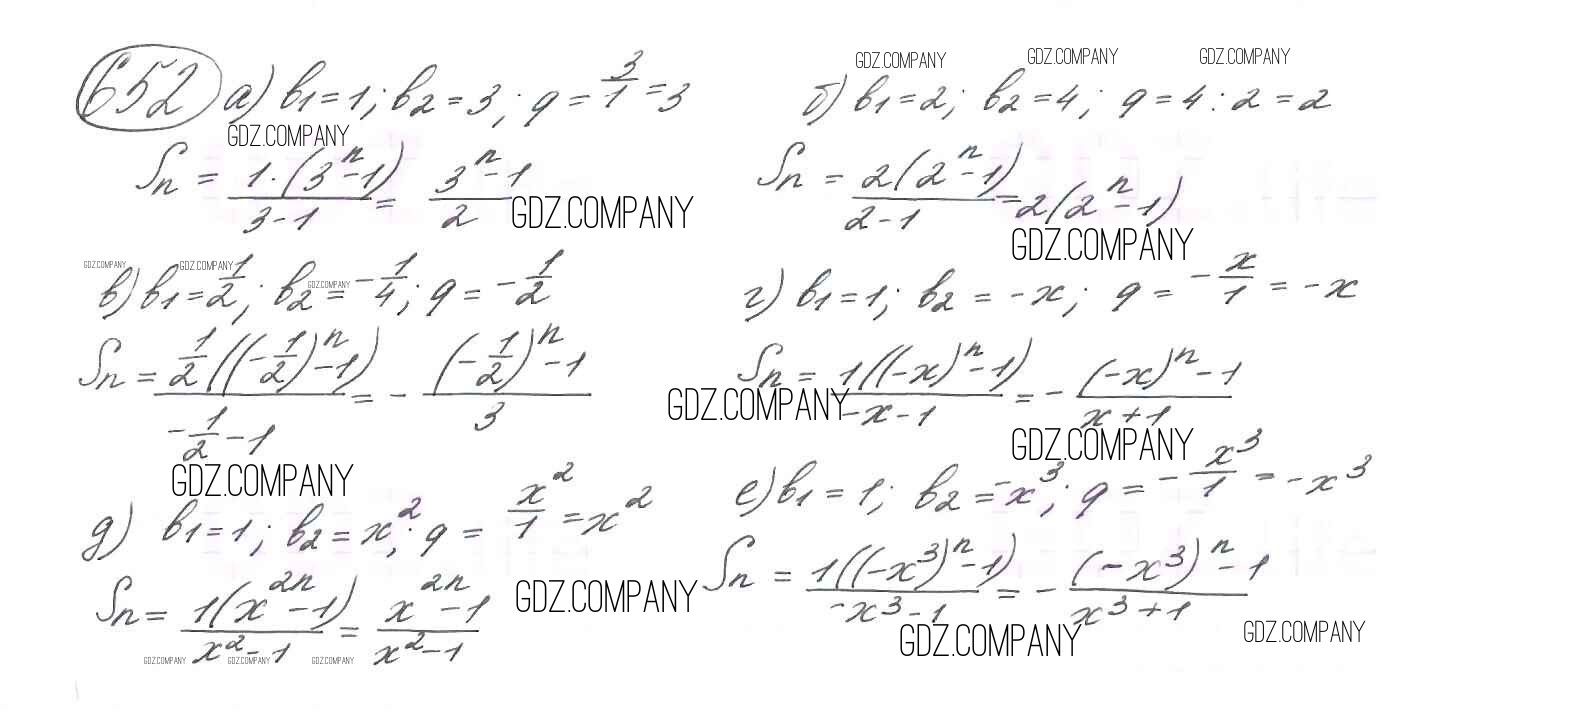 652 а) b₁=1; b₂=3; q=3/1=3
GDZ.COMPANY
Sₙ = 1·(3ⁿ-1)/(3-1) = (3ⁿ-1)/2
GDZ.COMPANY
GDZ.COMPANY GDZ.COMPANY GDZ.COMPANY
б) b₁=2; b₂=4; q=4:2=2
Sₙ = 2(2ⁿ-1)/(2-1) = 2(2ⁿ-1)
GDZ.COMPANY
GDZ.COMPANY GDZ.COMPANY
в) b₁=1/2; b₂=-1/4; q=-1/2
GDZ.COMPANY
Sₙ = 1/2((-1/2)ⁿ-1)/(-1/2-1) = -((-1/2)ⁿ-1)/3
GDZ.COMPANY
г) b₁=1; b₂=-x; q=-x/1=-x
Sₙ = 1((-x)ⁿ-1)/(-x-1) = -((-x)ⁿ-1)/(x+1)
GDZ.COMPANY
GDZ.COMPANY
д) b₁=1; b₂=x²; q=x²/1=x²
Sₙ = 1(x²ⁿ-1)/(x²-1) = (x²ⁿ-1)/(x²-1)
GDZ.COMPANY
GDZ.COMPANY GDZ.COMPANY GDZ.COMPANY
е) b₁=1; b₂=-x³; q=-x³/1=-x³
Sₙ = 1((-x³)ⁿ-1)/(-x³-1) = -((-x³)ⁿ-1)/(x³+1)
GDZ.COMPANY
GDZ.COMPANY